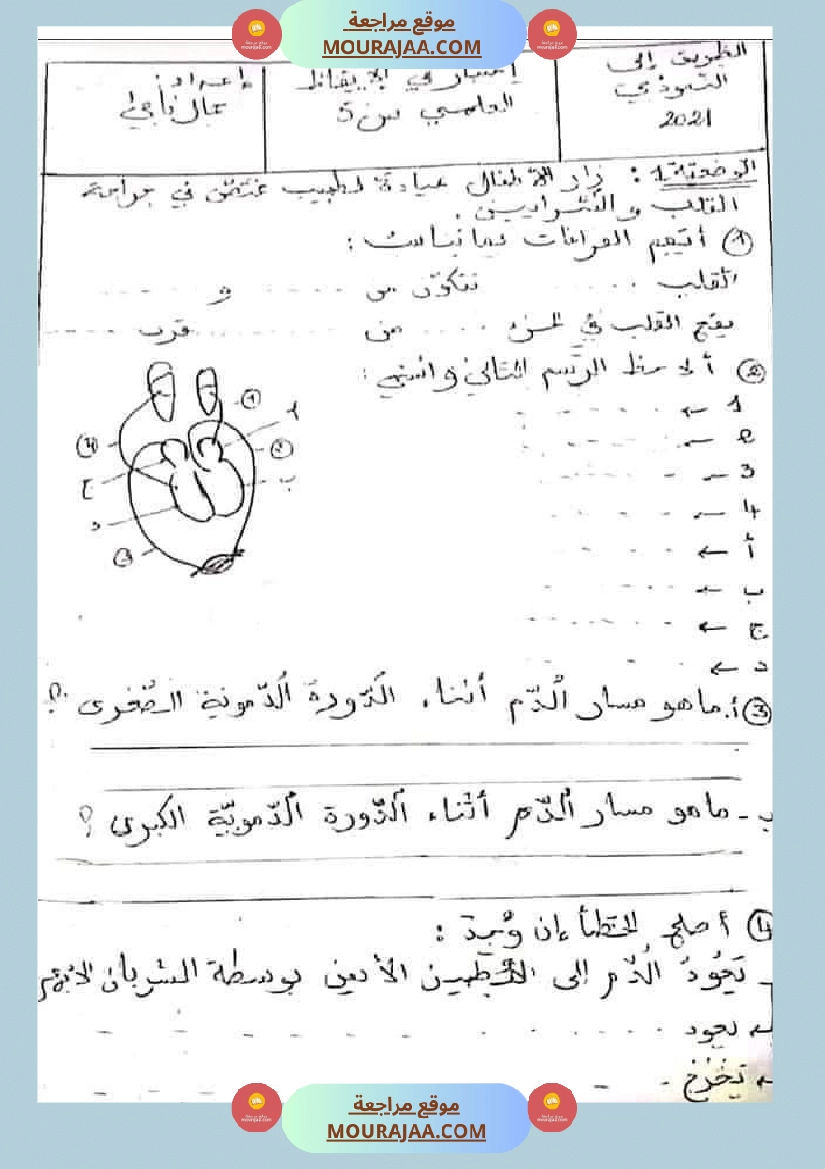 موقع مراجعة
MOURAJAA.COM
الطريق إلى
النموذجي
2021
إختبار في الإيقاظ
العلمي س 5
إعداد:
الوضعية 1: زار الأطفال عيادة لطبيب مختص في جراحة
القلب و الشرايين.
1 أتمم الفراغات بما يناسب:
القلب ...... تتكون من ...... و ......
يقع القلب في الجزء .... من ...... قرب ......
2 ألاحظ الرسم التالي و أسمي:
1 ←
2 ←
3 ←
4 ←
أ ←
ب ←
ج ←
د ←
1
أ
2
ب
4
ج
د
3
3 أ. ما هو مسار الدّم أثناء الدّورة الدّموية الصّغرى؟
ب - ما هو مسار الدّم أثناء الدّورة الدّمويّة الكبرى؟
4 أصلح الخطأ إن وجد:
- تَعُودُ الدّم إلى الأيمن بوسطة الشريان الأبهر
← يعود ......
← تخرج
موقع مراجعة
MOURAJAA.COM